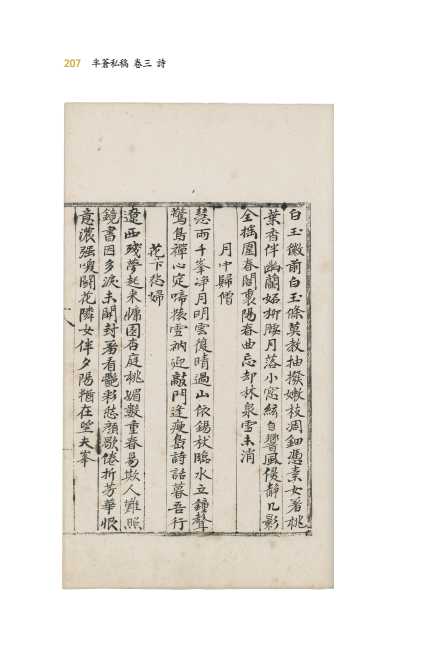 207 半蒼私稿 卷三 詩
白玉徽前白玉條莫教抽撥嫩枝凋鈿憑素女看桃
葉香伴幽蘭妬柳腰月落小窓絃自響風侵靜几影
全搖圍春閣裏陽春曲忘却林泉雪未消
月中歸僧
愁雨千峯淨月明雲後晴過山依錫杖臨水立鐘聲
驚鳥禪心定啼猿雪衲迎敲門逢瘦島詩話暮吾行
花下愁婦
遼西殘夢起來慵園杏庭桃媚數重春易欺人難照
鏡書因多淚未開封著看艶彩愁顔歇倦折芳華恨
意濃强喚鬪花隣女伴夕陽猶在望夫峯